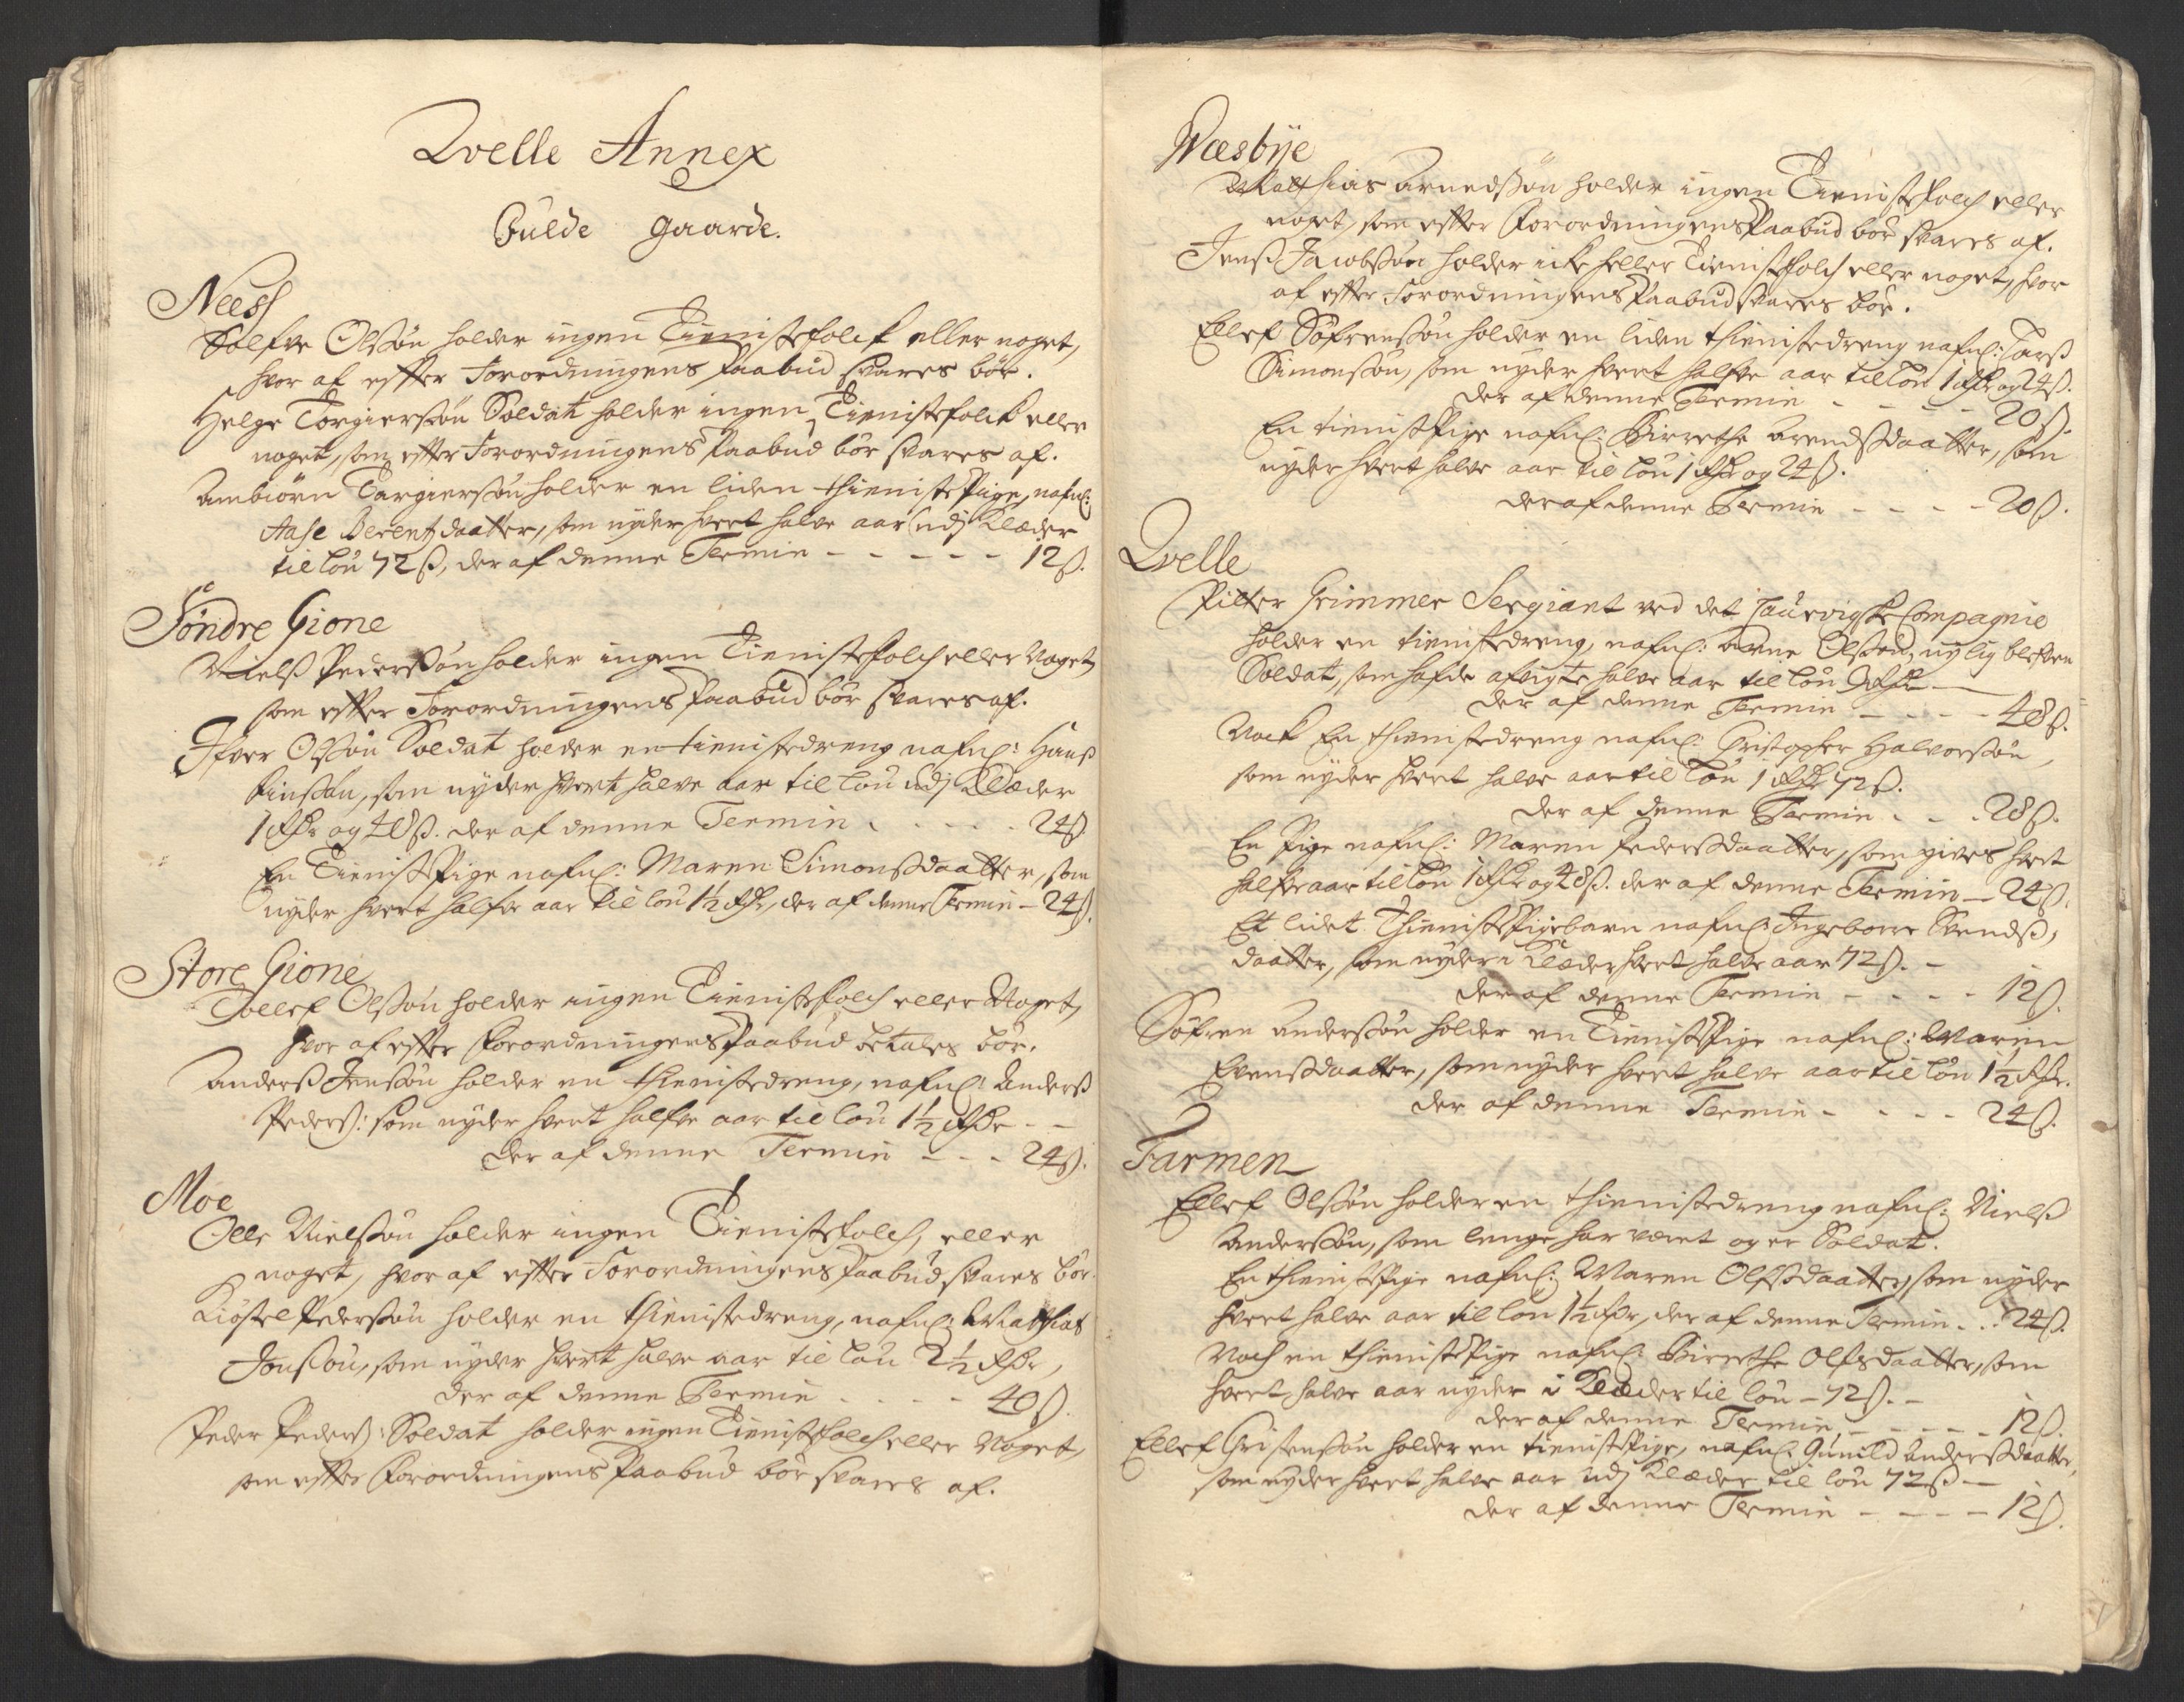 Qvelle Annex
Fulde gaarde.
Neess
Sølfve Olssøn holder ingen Tienistefolck eller noget,
hvor af effter Forordningens Paabud svares bør.
Helge Torgierssøn Soldat holder ingen Tienistefolck eller
noget, som effter Forordningens Paabud bør svares af.
Ambiørn Targierssøn holder en liden thieniste Pige, nafnl:
Aase Berentzdaatter, som nyder hvert halve aar udj Klæder
til løn 72 ß, der af denne Termin - - - - - 12 ß.
Søndre Gione
Nielß Pederssøn holder ingen Tienistefolch eller Noget,
som effter Forordningens Paabud bør svares af.
Ifver Olssøn Soldat holder en tienistedreng nafnl: Hanß
Finssøn, som nyder hvert halve aar til løn udj Klæder
1 Rdr og 48 ß. der af denne Termin . - - . 24 ß
En Tieniste Pige nafnl: Maren Simonßdaatter, som
nyder hvert halfve aar til løn 1½ Rdr, der af denne Termin - 24 ß.
Store Gione
Tollef Olssøn holder ingen Tienistefolch eller Noget,
hvor af effter Forordningens Paabud betales bør.
Anderß Jenssøn holder en thienistedreng, nafnl: Anderß
Peders: som nyder hvert halfve aar til løn 1½ Rdr - -
der af denne Termin - - - 24 ß.
Moe
Olle Nielssøn holder ingen Tienistefolch, eller
noget, hvor af effter Forordningens Paabud svares bør.
Kiøstel Pederssøn holder en thienistedreng, nafnl: Mathias
Jonssøn, som nyder hvert halve aar til løn 2½ Rdr,
der af denne Termin - - - - 40 ß.
Peder Peders: Soldat holder ingen Tienistefolch eller Noget,
som effter Forordningens Paabud bør svares af.
Wæsbye
Matthias Arnedssøn holder ingen Tienistefolch eller
noget, som effter Forordningens Paabud bør svares af.
Jenß Jacobssøn holder icke heller Tienistefolch eller noget, hvor
af effter Forordningens Paabud svares bør.
Ellef Søfrenssøn holder en liden thienistedreng nafnl: Larß
Simonssøn, som nyder hvert halfve aar til løn 1 Rdr og 24 ß.
der af denne Termin - - - - 20 ß.
En tieniste Pige nafnl: Birrethe Arendsdaatter, som
nyder hvert halve aar til løn 1 Rdr og 24 ß.
der af denne Termin - - - - 20 ß.
Qvelle
Pitter Grimmer Sergiant ved det Laurvigske Compagnie
holder en tienistedreng, nafnl: Arne Olssøn, nylig blefven
Soldat, som hafde afvigte halve aar til løn 3 Rdr -
der af denne Termin - - - - 48 ß.
Nock En thienistedreng nafnl: Christopher Halvorssøn,
som nyder hvert halve aar til løn 1 Rdr 72 ß.
der af denne Termin - - . 28 ß.
En Pige nafnl: Maren Pederßdaatter, som gives hvert
halfve aar til løn 1 Rdr og 48 ß. der af denne Termin - 24 ß.
Et lidet Thieniste Pigebarn nafnl: Ingeborre Svendß,
daatter, som nyder i Klæder hvert halve aar 72 ß. -
der af denne Termin - - - - 12 ß.
Søfren Anderssøn holder en Tieniste Pige nafnl: Maren
Evenßdaatter, som nyder hvert halve aar til løn 1½ Rdr.
der af denne Termin - - - - 24 ß.
Farmen
Ellef Olssøn holder en thienistedreng nafnl: Nielß
Anderssøn, som lenge har været og er Soldat.
En thieniste Pige nafnl: Maren Olssdaatter, som nyder
hvert halve aar til løn 1½ Rdr, der af denne Termin . . 24 ß.
Noch en thieniste Pige nafnl: Birrethe Olssdaatter, som
hvert halve aar nyder i Klæder til løn - 72 ß. -
der af denne Termin - - - - - 12 ß.
Ellef Christenssøn holder en tieniste Pige, nafnl: Gunild Anderßdaatter,
som nyder hvert halve aar udj Klæder til løn 72 ß -
der af denne Termin - - - - 12 ß.